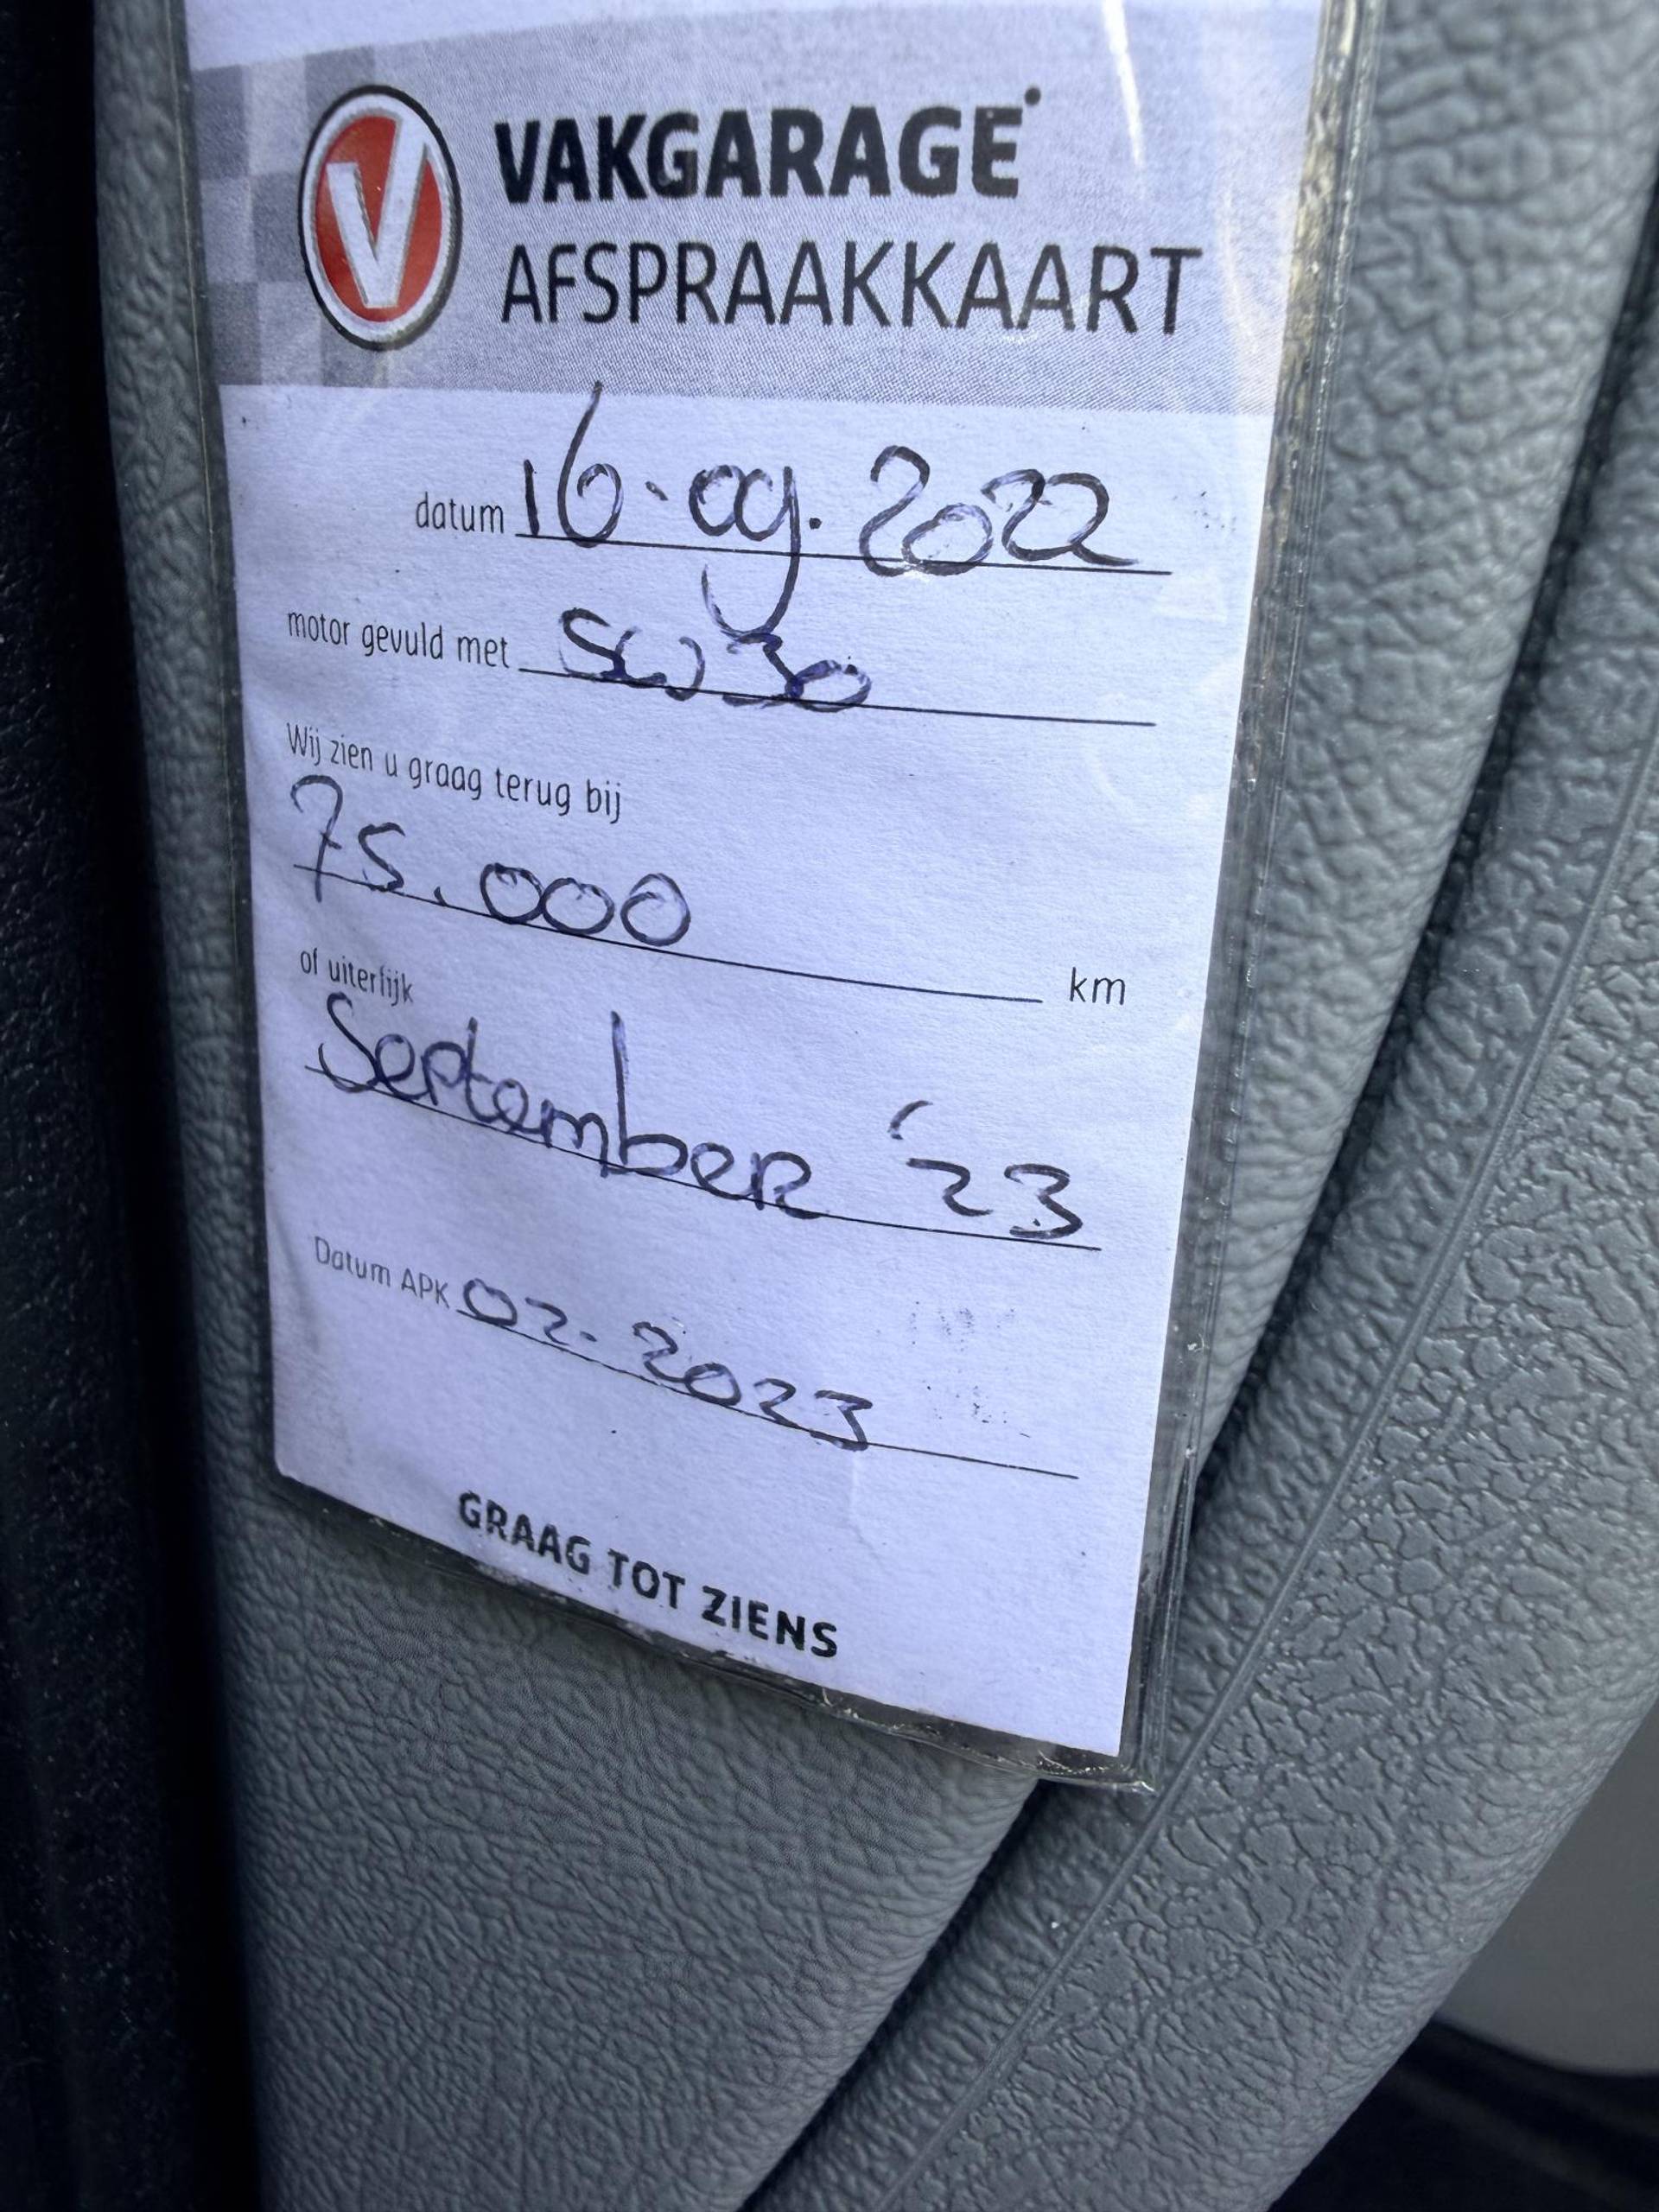 VAKGARAGE
AFSPRAAKKAART
datum 16-09.2022
motor gevuld met 5w30
Wij zien u graag terug bij
75.000 km
of uiterlijk
September '23
Datum APK 02-2023
GRAAG TOT ZIENS